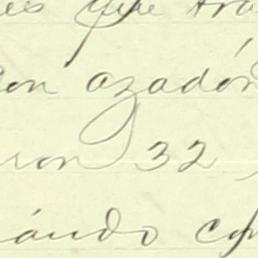 es que tra
con azadón
ron 32
ando con